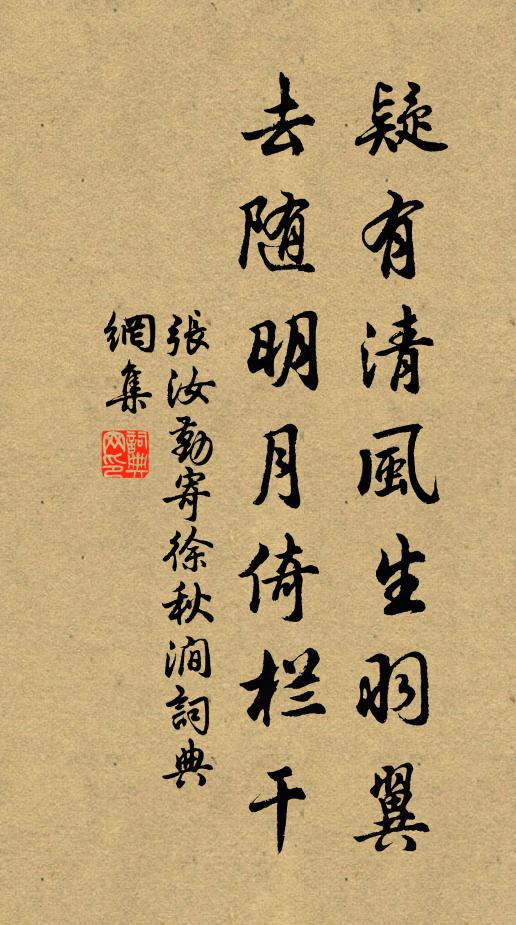 疑有清風生羽翼
去随明月倚栏干
張汝勤寄徐秋澗詞典
網集
詞典網印